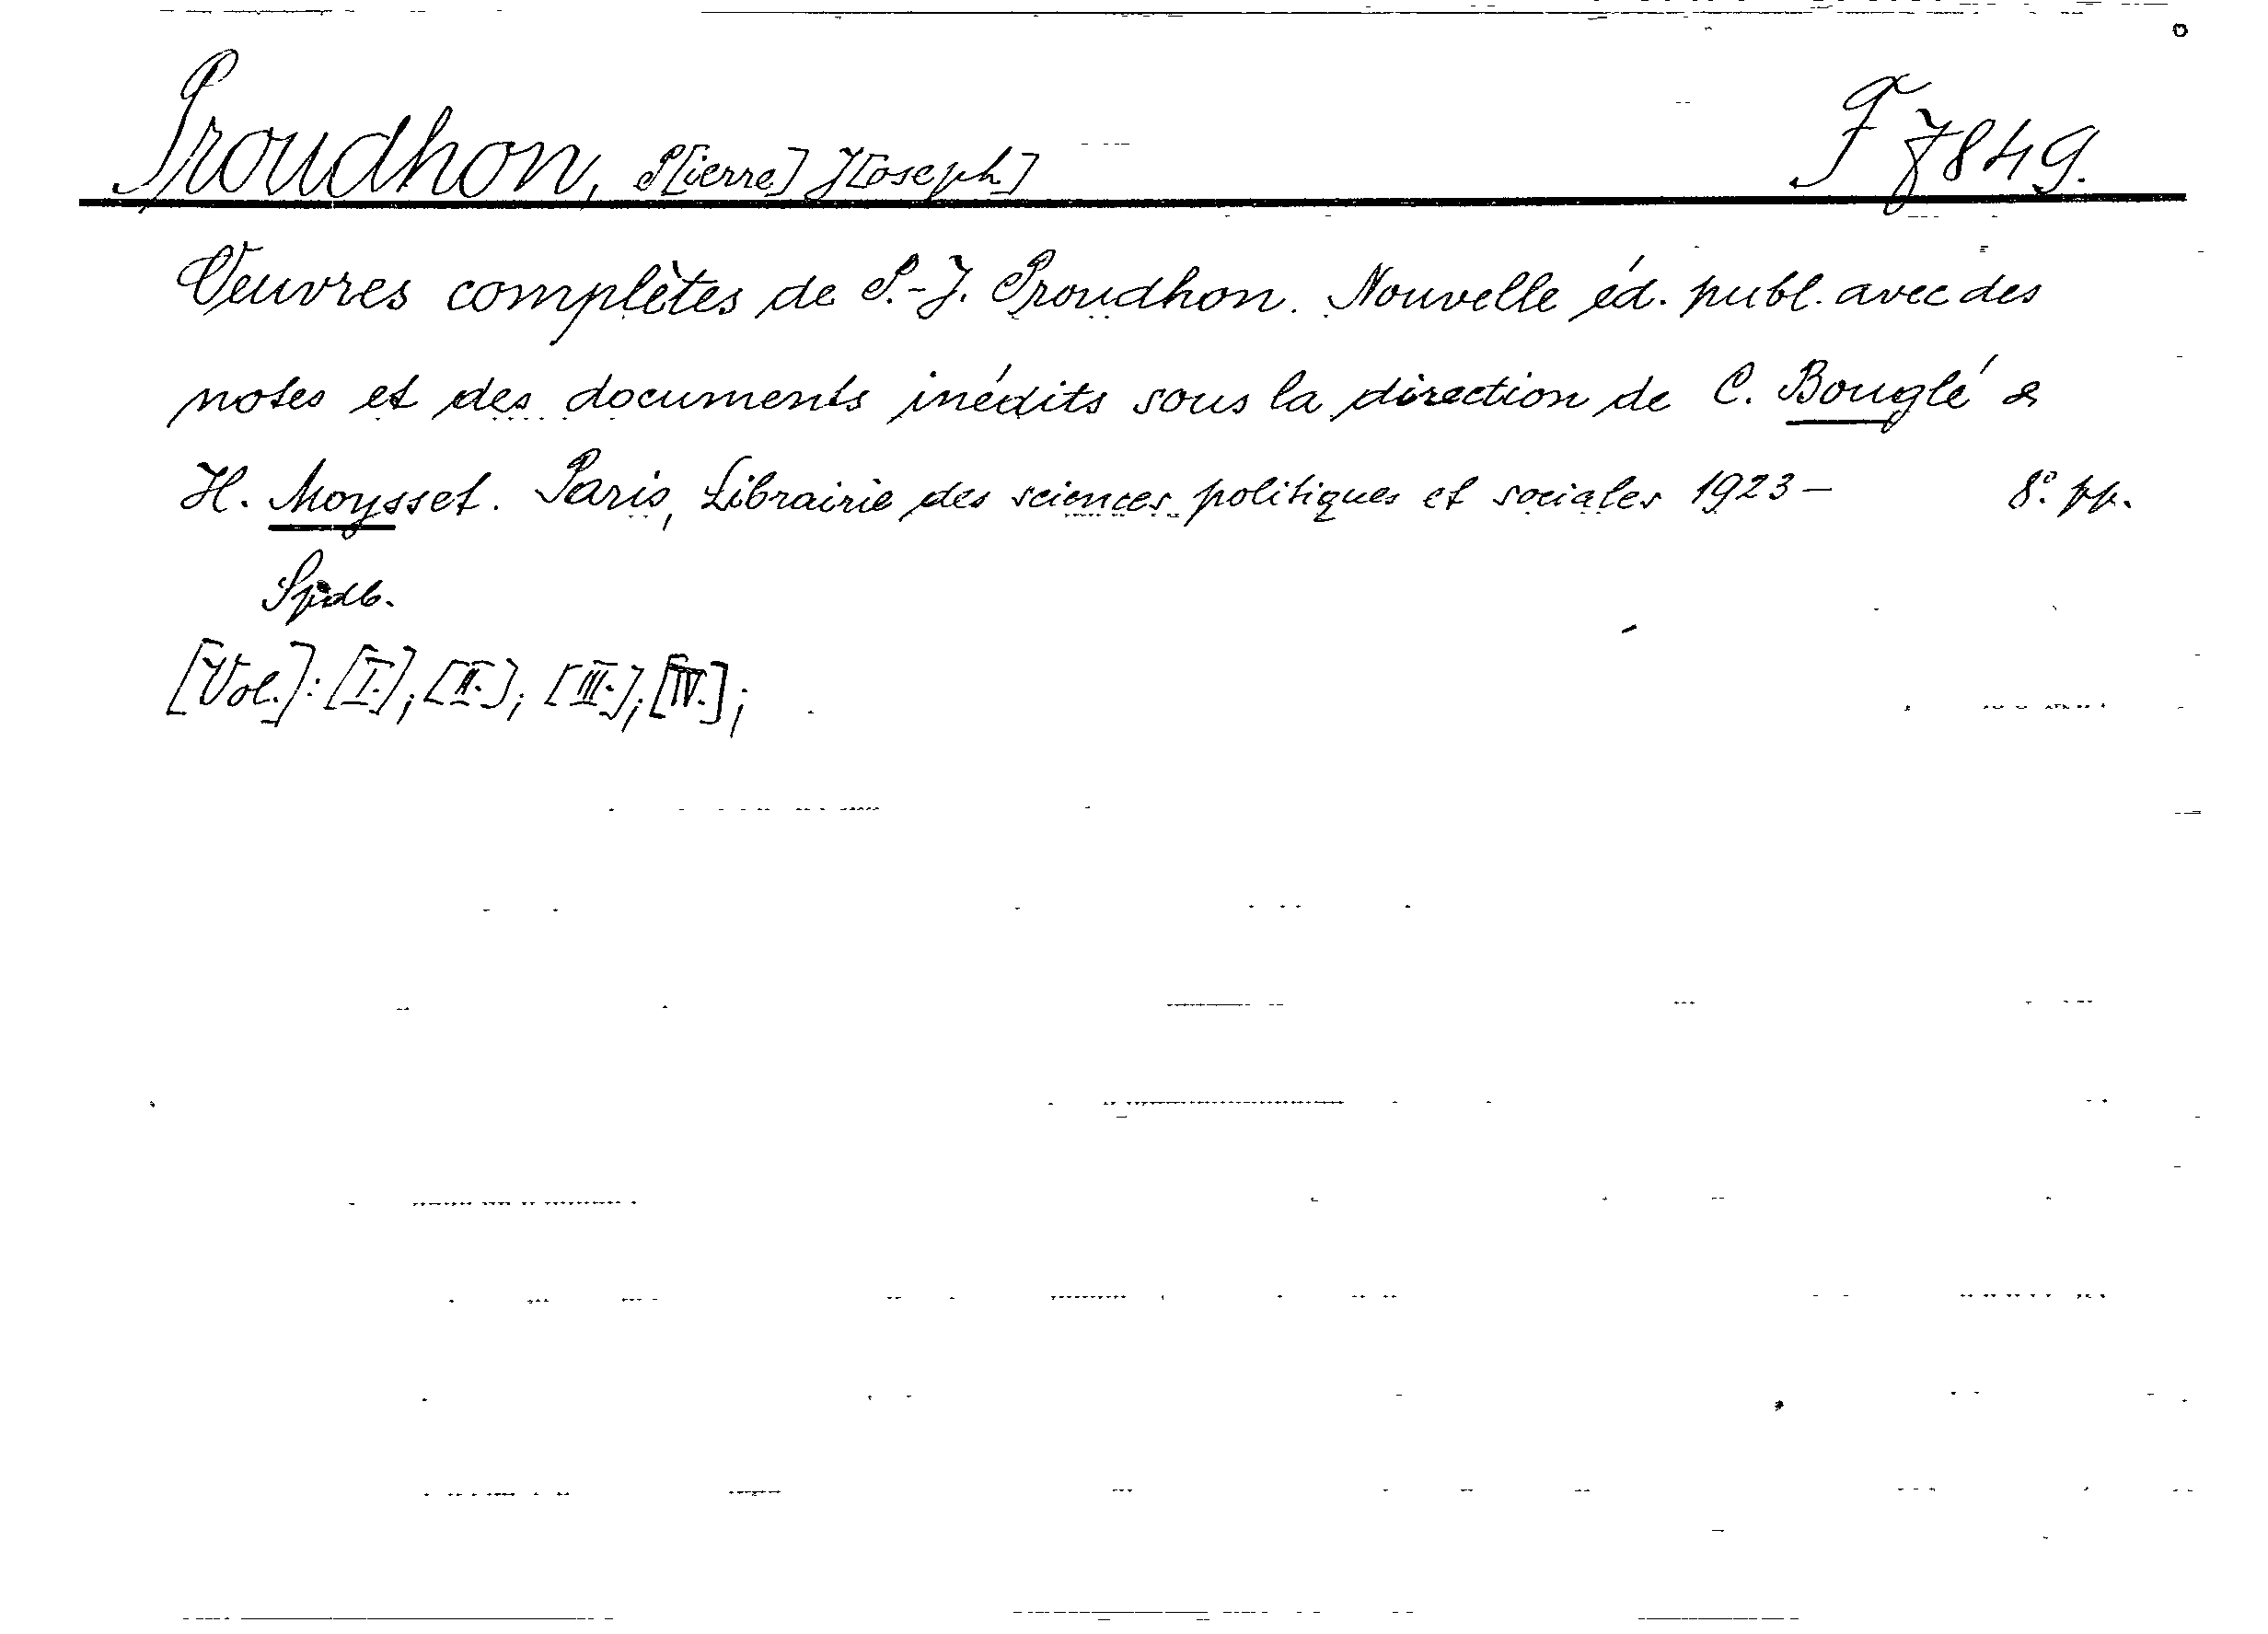 Proudhon, P[ierre] J[oseph] F 7849.
Oeuvres complètes de P.-J. Proudhon. Nouvelle éd. publ. avec des
notes et des documents inédits sous la direction de C. Bouglé &
H. Moysset. Paris, Librairie des sciences politiques et sociales 1923 – 8º. pp.
[Vol.]: [I.]; [II.]; [III.]; [IV.];